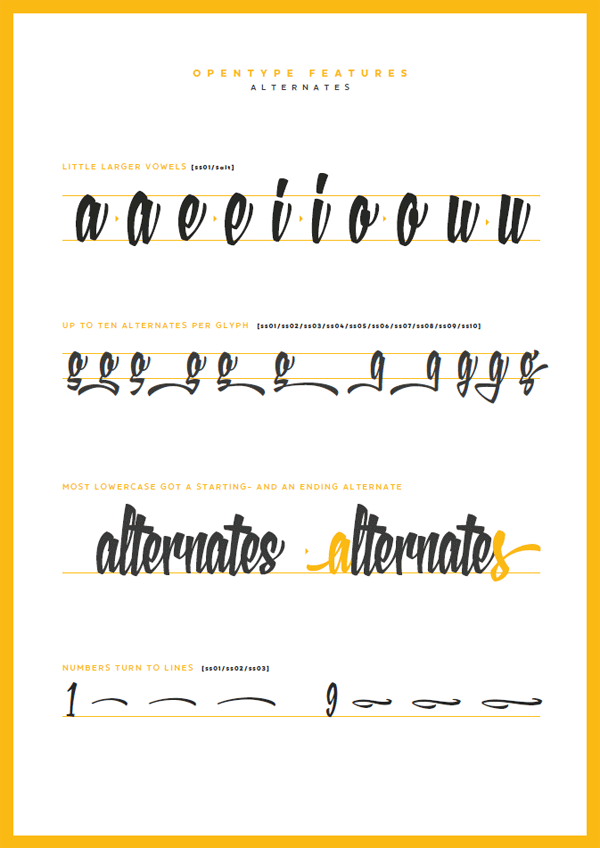 OPENTYPE FEATURES
ALTERNATES
LITTLE LARGER VOWELS [ss01/salt]
a a e e i i o o u u
UP TO TEN ALTERNATES PER GLYPH [ss01/ss02/ss03/ss04/ss05/ss06/ss07/ss08/ss09/ss10]
g g g g g g g g g g g
MOST LOWERCASE GOT A STARTING- AND AN ENDING ALTERNATE
alternates alternates
NUMBERS TURN TO LINES [ss01/ss02/ss03]
1 9